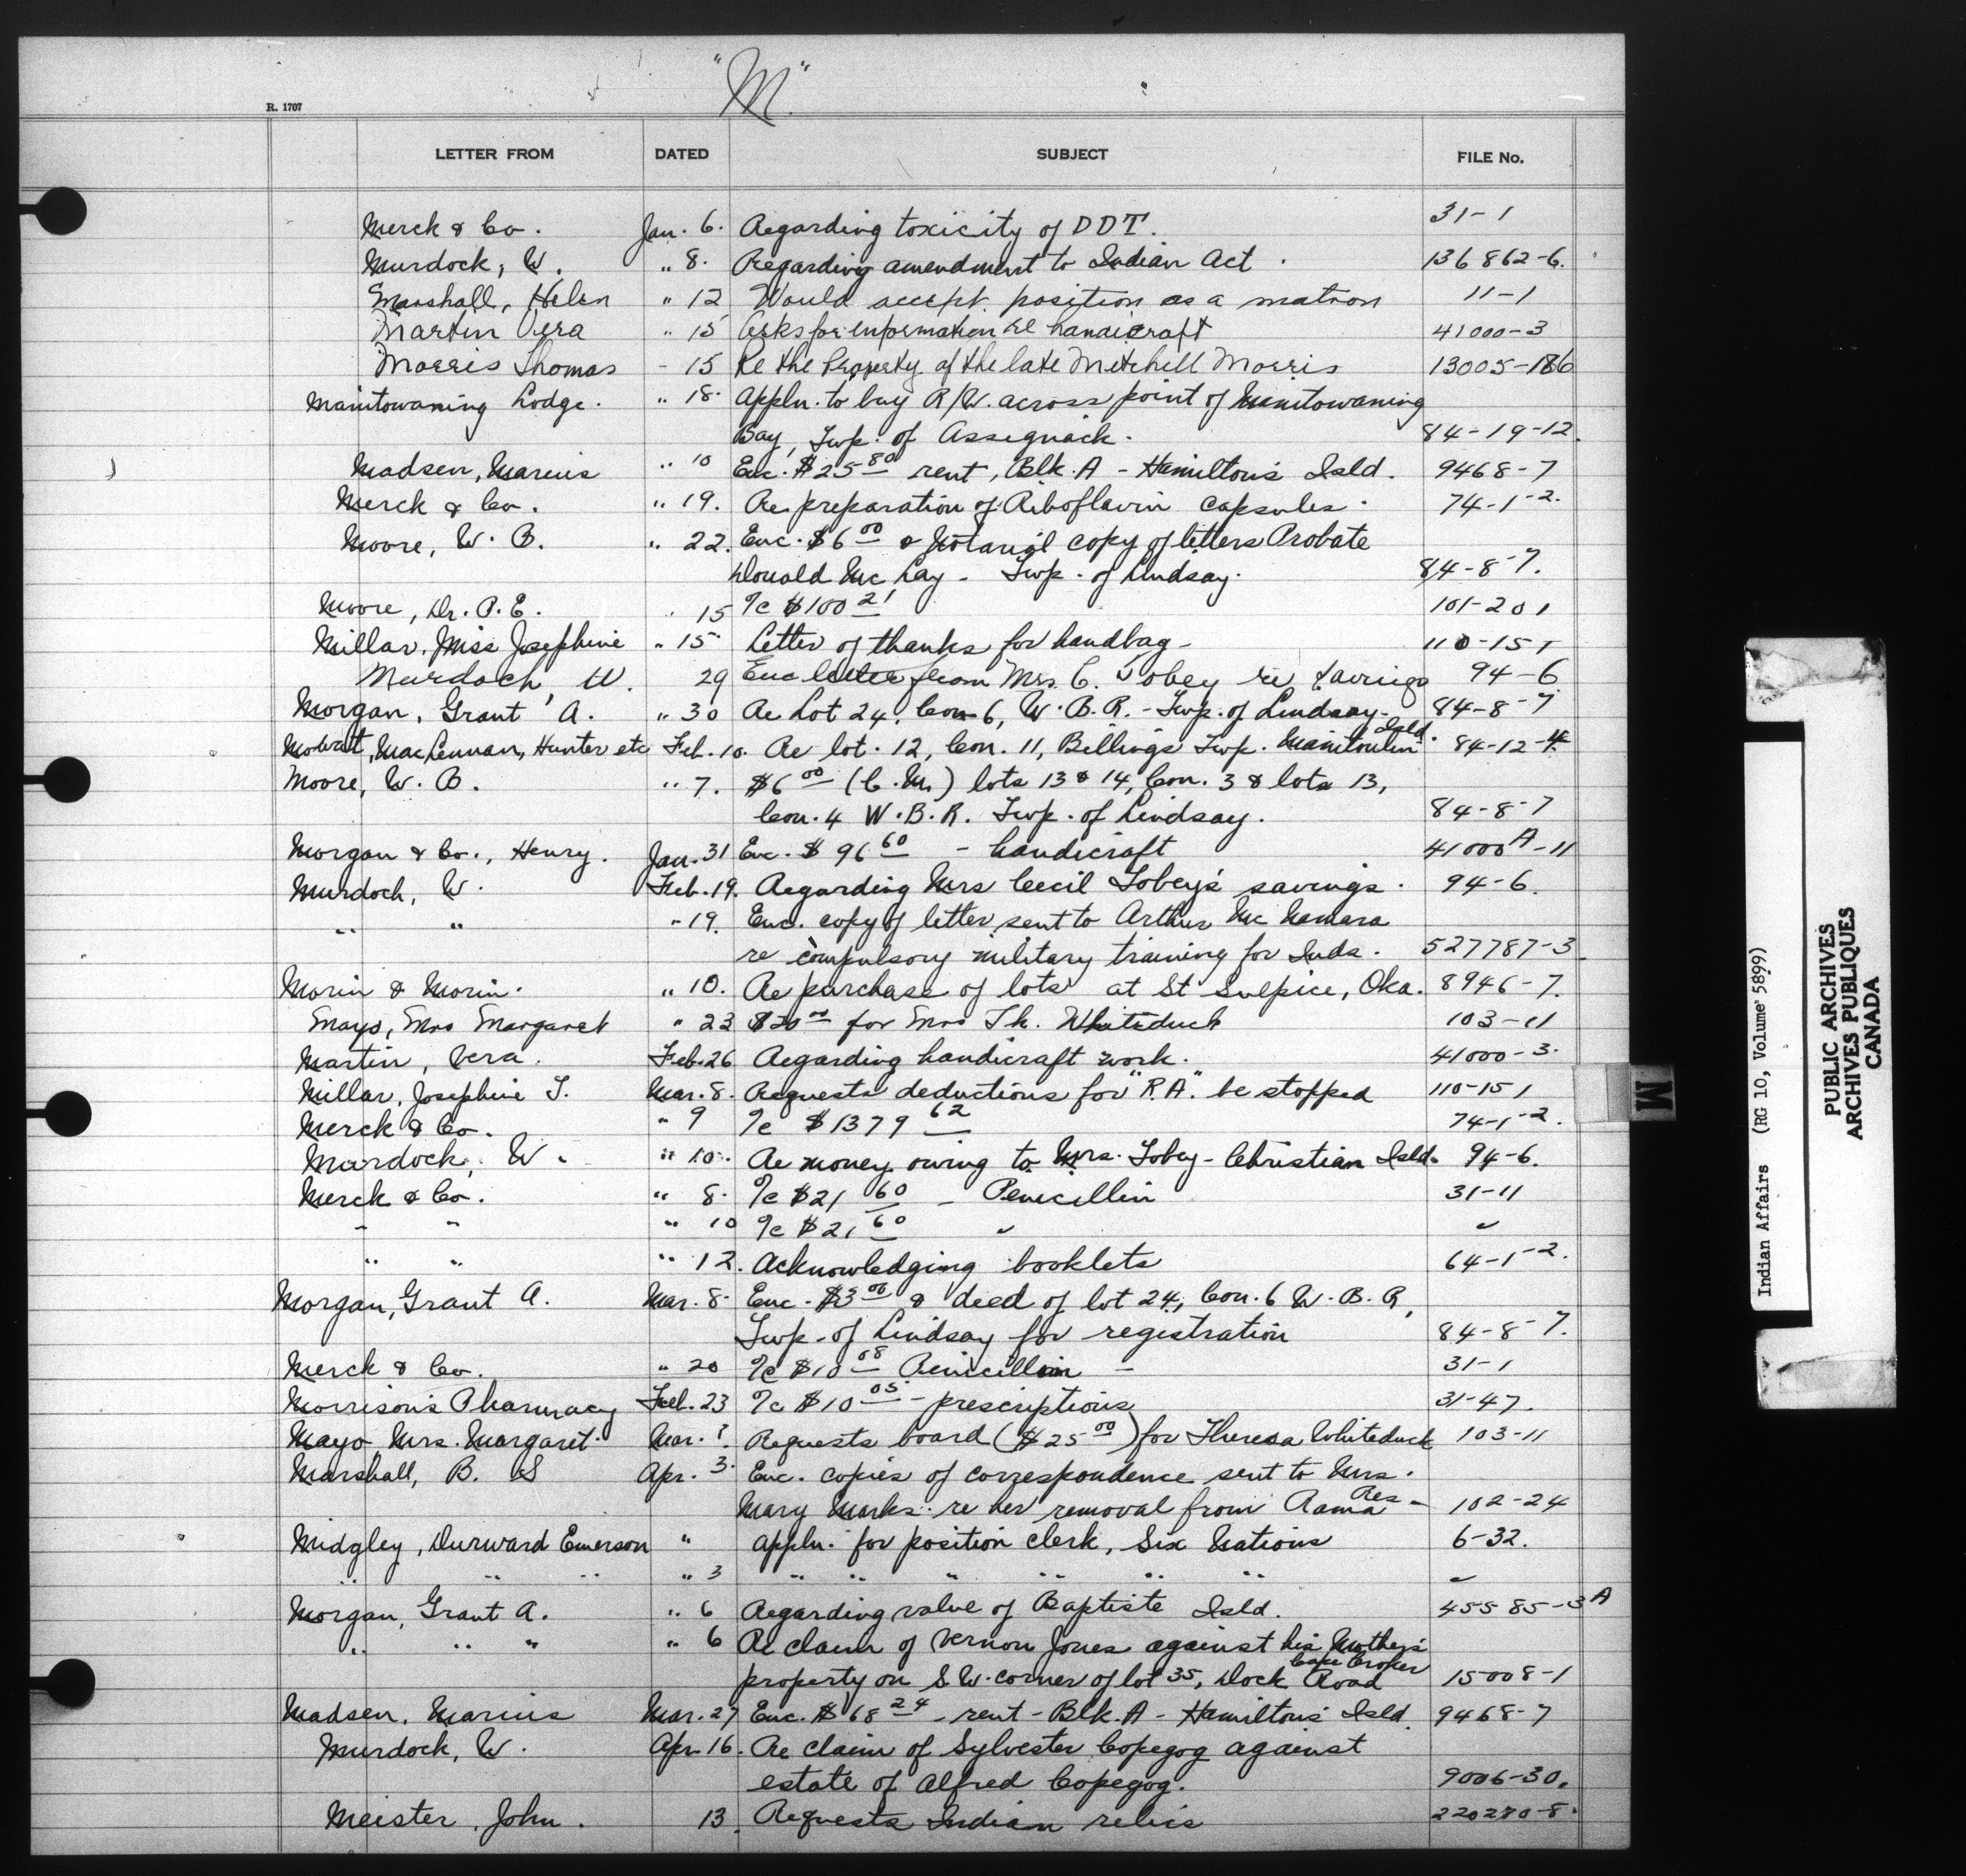 "M"
R. 1707
LETTER FROM DATED SUBJECT FILE No.
Merck & Co. Jan. 6. Regarding toxicity of DDT. 31-1
Murdock, W. " 8. Regarding amendment to Indian Act. 136862-6.
Marshall, Helen " 12 Would accept position as a matron 11-1
Martin Vera " 15 Asks for information re handicraft 41000-3
Morris Thomas - 15 Re the Property of the late Mitchell Morris 13005-186
Manitowaning Lodge. " 18. Appln. to buy R/W. across point of Manitowaning
Bay, Twp. of Assiginack. 84-19-12.
Madsen, Marius " 10 Enc. $25 80 rent, Blk. A - Hamilton's Isld. 9468-7
Merck & Co. " 19. Re preparation of Riboflavin capsules. 74-1-2.
Moore, W. B. " 22. Enc. $6 00 & Notarial copy of letters Probate
Donald McLay - Twp. of Lindsay. 84-8-7.
Moore, Dr. P. E. " 15 %c $100 21 101-20 1
Millar, Miss Josephine " 15 Letter of thanks for handbag - 110-15 1
Murdoch, W. 29 Enc letter from Mrs. C. Tobey re savings 94-6
Morgan, Grant A. " 30 Re Lot 24, Con 6, W.B.R. - Twp. of Lindsay - 84-8-7
Mowat, MacLennan, Hunter etc Feb. 10. Re lot. 12, Con. 11, Billings Twp. Manitoulin Isld. 84-12-4.
Moore, W. B. " 7. $6 00 (C.M.) lots 13 & 14, Con. 3 & lots 13,
Con. 4 W.B.R. Twp. of Lindsay. 84-8-7
Morgan & Co., Henry. Jan. 31 Enc. $96 60 - handicraft 41000A-11
Murdoch, W. Feb. 19. Regarding Mrs Cecil Tobey's savings. 94-6.
" " - 19. Enc. copy of letter sent to Arthur McNamara
re compulsory military training for Inds. 527787-3
Morin & Morin. " 10. Re purchase of lots at St Sulpice, Oka. 8946-7.
Mayo, Mrs Margaret " 23 $20 00 for Mrs Th. Whiteduck 103-11
Martin, Vera. Feb. 26 Regarding handicraft work. 41000-3.
Millar, Josephine T. Mar. 8. Requests deductions for "R.A." be stopped 110-15 1
Merck & Co. " 9 %c $1379 62 74-1-2.
Murdock, W. " 10. Re money owing to Mrs. Tobey - Christian Isld. 94-6.
Merck & Co. " 8. %c $21 60 - Penicillin 31-11
" " " 10 %c $21 60 " "
" " " 12. Acknowledging booklets 64-1-2.
Morgan, Grant A. Mar. 8. Enc. $3 00 & deed of lot 24, Con. 6 W.B.R,
Twp. of Lindsay for registration 84-8-7.
Merck & Co. " 20 %c $10 08 Penicillin - 31-1
Morrison's Pharmacy Feb. 23 %c $10 05 - prescriptions 31-47.
Mayo, Mrs. Margaret. Mar. ?. Requests board ($25 00) for Theresa Whiteduck 103-11
Marshall, B. S Apr. 3. Enc. copies of correspondence sent to Mrs.
Mary Marks re her removal from Rama Res - 102-24
Midgley, Durward Emerson " Appln. for position clerk, Six Nations 6-32.
" " " " 3 " " " " " " "
Morgan, Grant A. " 6 Regarding value of Baptiste Isld. 45585-3A
" " " " 6 Re claim of Vernon Jones against his Mother's
property on S.W. corner of lot 35, Dock Road Cape Croker 15008-1
Madsen, Marius Mar. 27 Enc. $68 24 - rent - Blk. A - Hamilton's Isld. 9468-7
Murdock, W. Apr. 16. Re claim of Sylvester Copegog against
estate of Alfred Copegog. 9006-30.
Meister, John. 13. Requests Indian relics 220270-8.
M
Indian Affairs (RG 10, Volume 5899)
PUBLIC ARCHIVES
ARCHIVES PUBLIQUES
CANADA